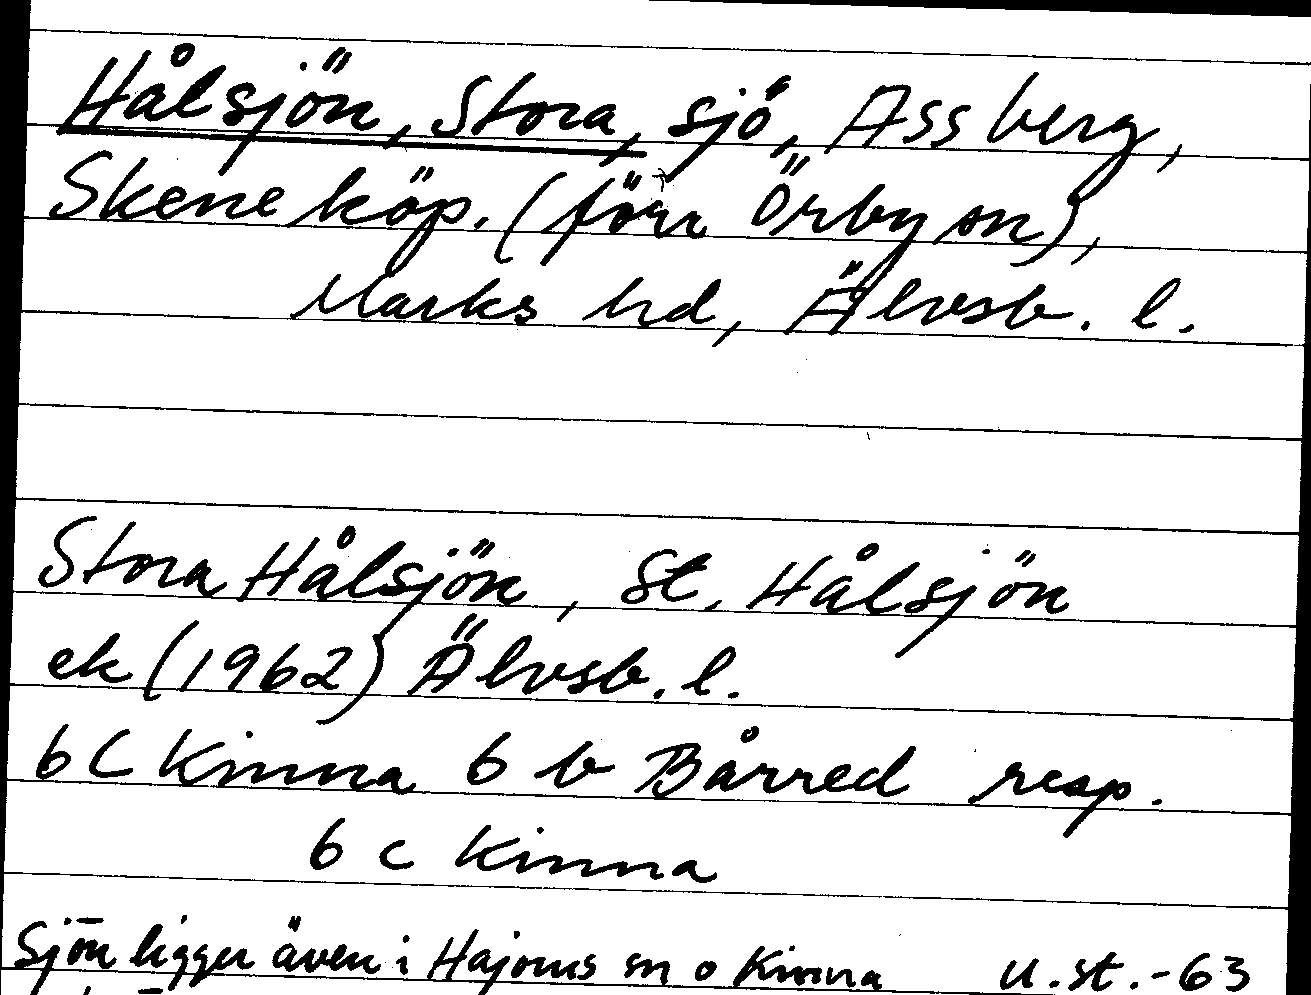 Hålsjön, Stora, sjö, Assberg,
Skene köp. (förr Örby sn),
Marks hd, Älvsb. l.
Stora Hålsjön, St. Hålsjön
ek (1962) Älvsb. l.
6 C Kinna 6 b Bårred resp.
6 c Kinna
Sjön ligger även i Hajoms sn o Kinna u.st.-63